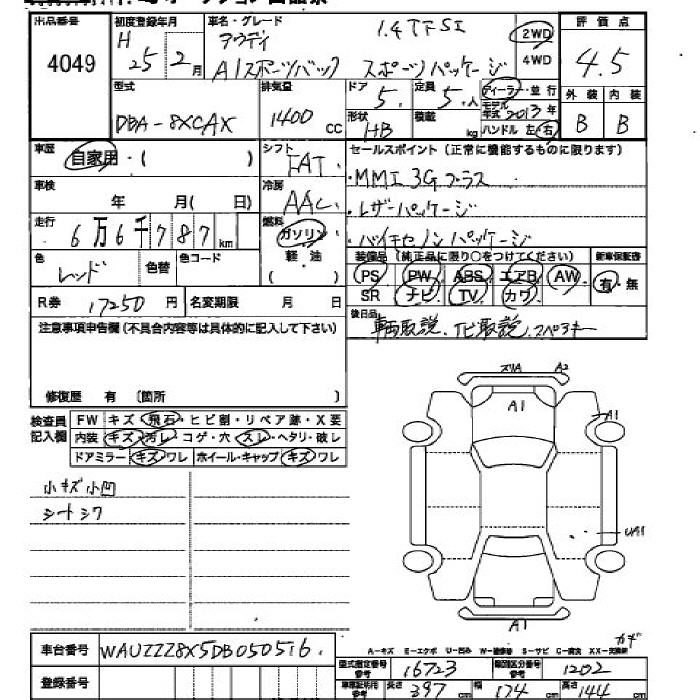 出品番号 初度登録年月 車名・グレード 評価点
4049 H 25年 2月 アウディ 1.4TFSI 2WD 4.5
A1スポーツバック スポーツパッケージ 4WD
型式 排気量 ドア 定員 ディーラー・並行 外装 内装
DBA-8XCAX 1400 CC 5 5人 モデル年式 2013年 B B
形状 HB 積載 kg ハンドル 左・右
車歴 自家用・( ) シフト FAT セールスポイント (正常に機能するものに限ります)
車検 年 月( 日) 冷房 AAC ・MMI 3Gプラス
走行 6万6千787km 燃料 ガソリン ・レザーパッケージ
軽油 ・バイキセノンパッケージ
色 レッド 色替 色コード ( ) 装備品 (純正品に限り○をつけてください) 新車保証書
PS PW ABS エアB AW 有・無
R券 17250円 名変期限 月 日 SR ナビ TV カワ
注意事項申告欄 (不具合内容等は具体的に記入して下さい) 後日品
車両取説、ナビ取説、スペアキー
修復歴 有 (箇所 )
検査員 FW キズ・飛石・ヒビ割・リペア跡・X要
記入欄 内装 キズ・汚レ・コゲ・穴・スレ・ヘタリ・破レ
ドアミラー キズ・ワレ ホイール・キャップ キズ・ワレ
ズリA A2
A1
A1
小キズ小凹
シートシワ
UA1
A1
カギ
A-キズ E-エクボ U-凹み W-補修跡 S-サビ C-腐食 XX-交換済
車台番号 WAUZZZ8X5DB050516
型式指定番号 参考 16723 類別区分番号 参考 1202
登録番号 車庫証明用 参考 長さ 397cm 幅 174cm 高さ 144cm